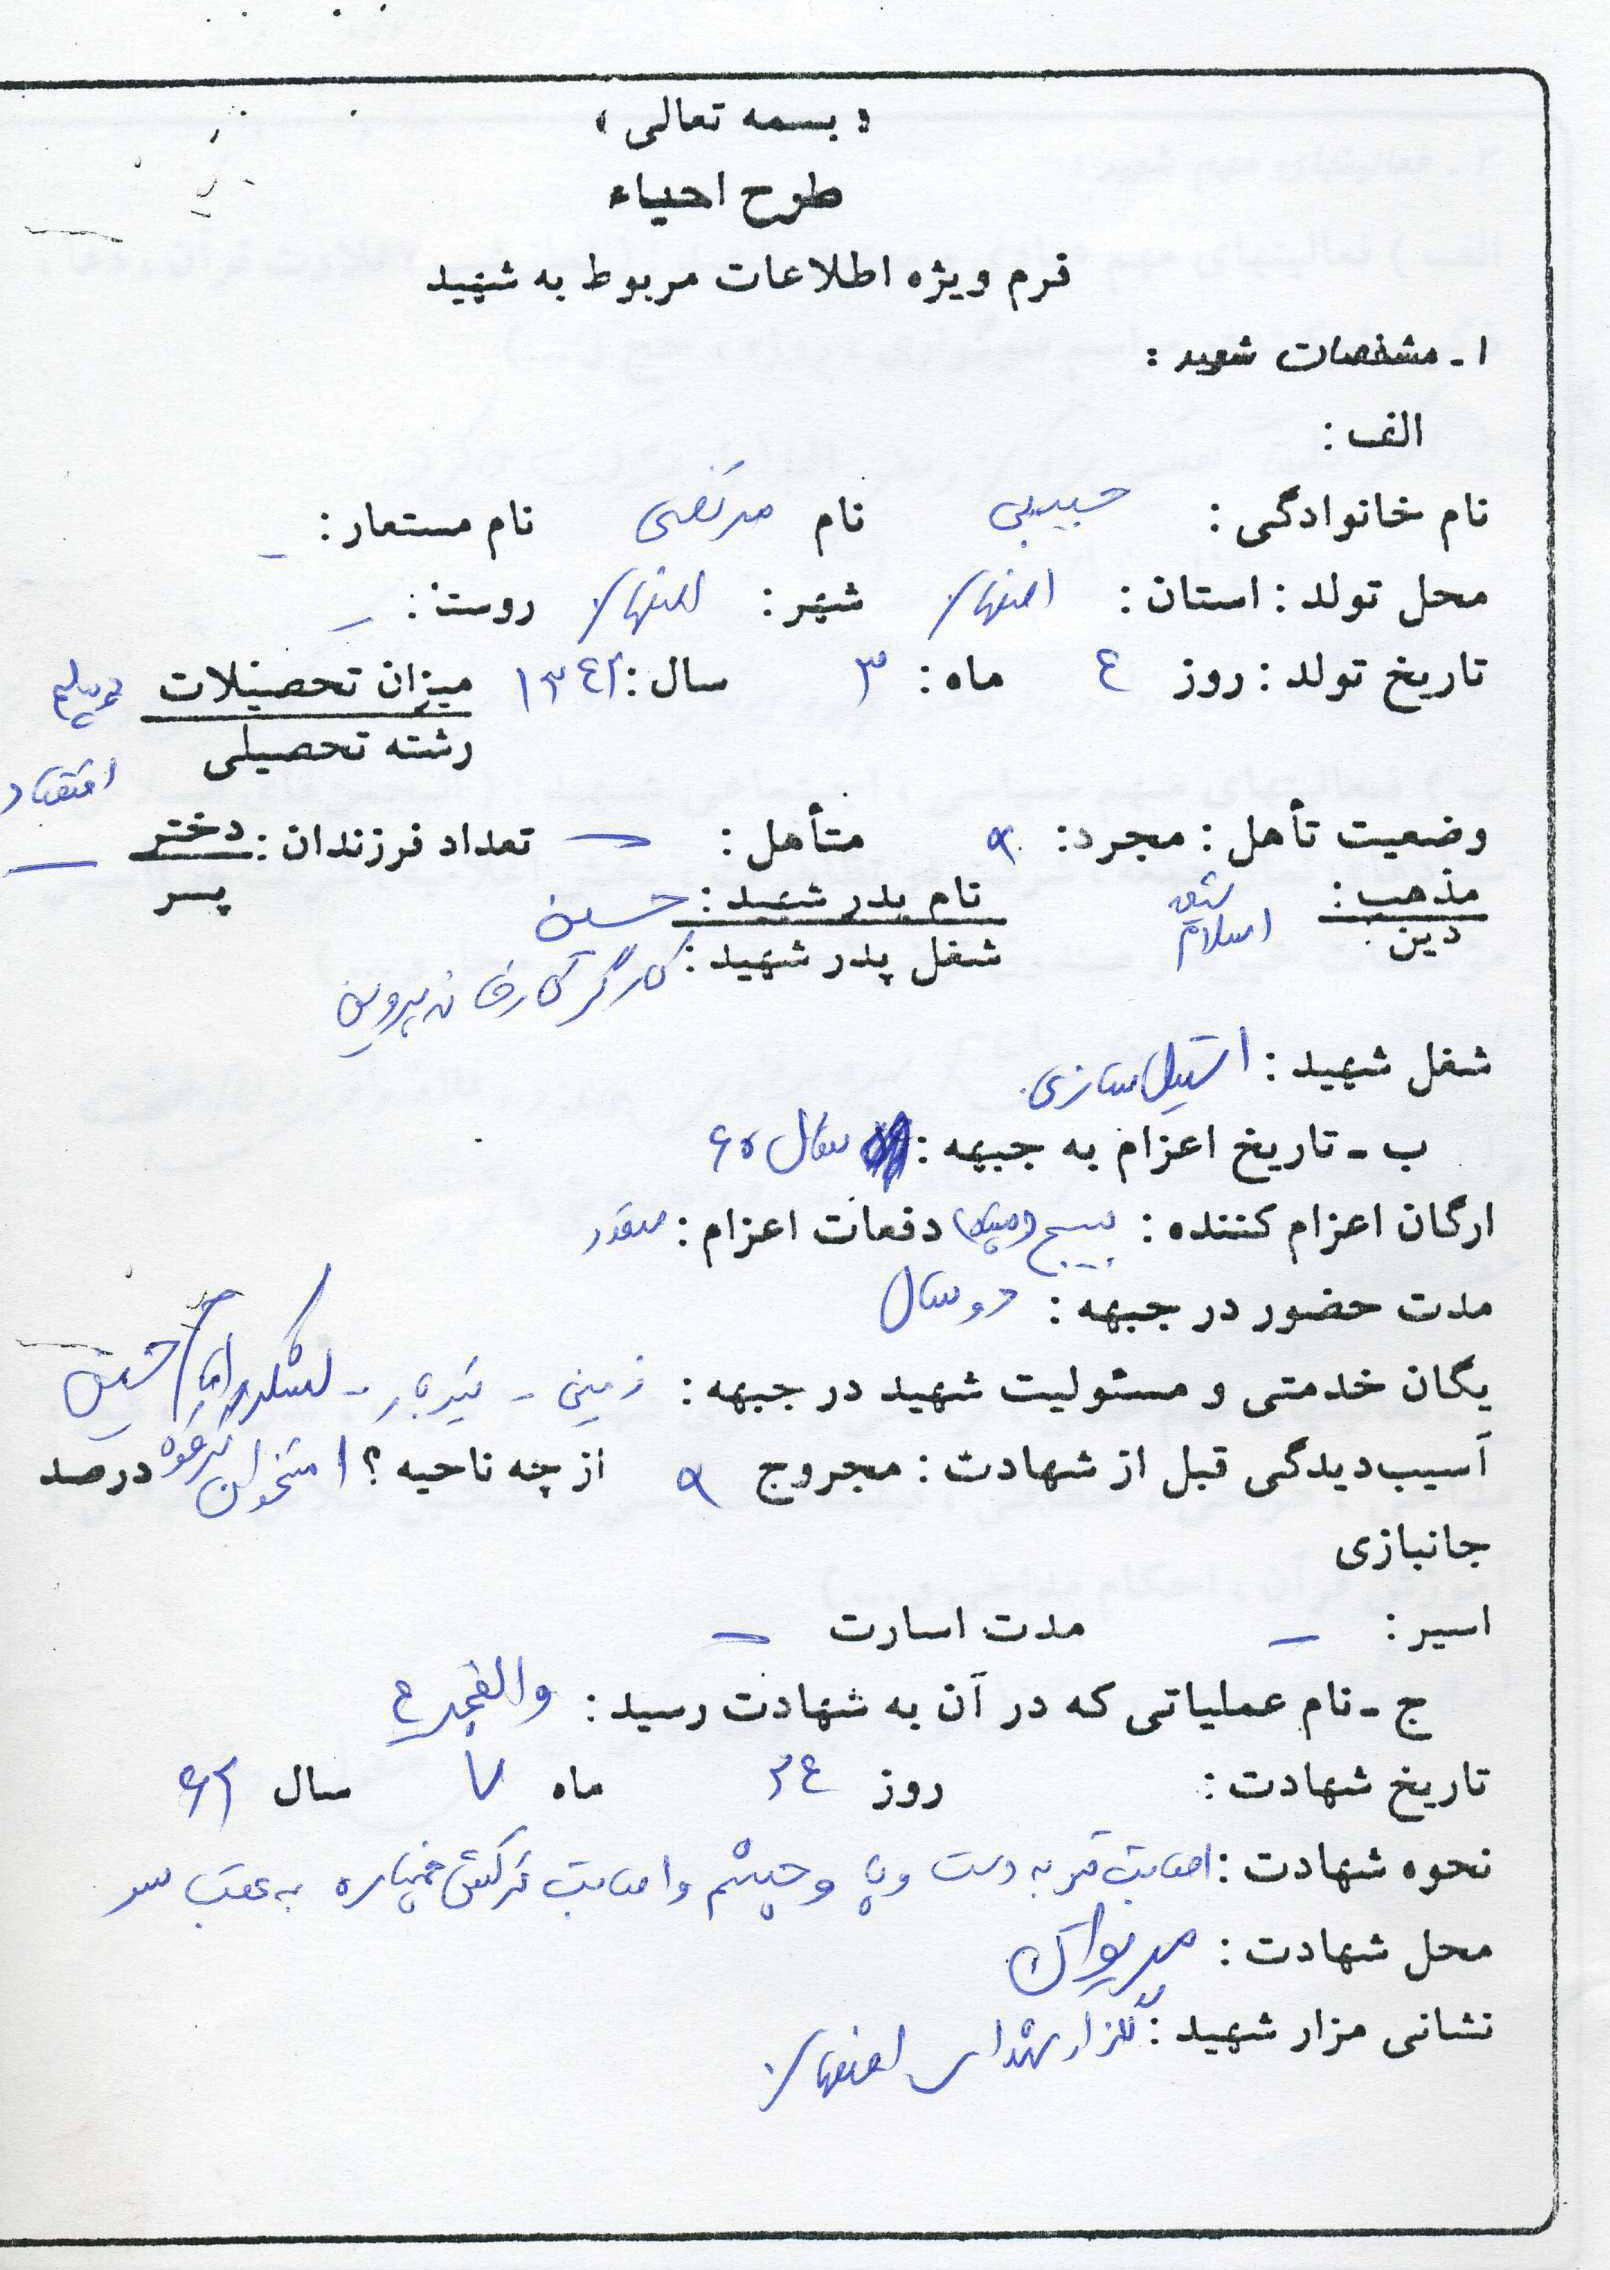 « بسمه تعالی »
طرح احیاء
فرم ویژه اطلاعات مربوط به شهید
۱ ـ مشخصات شهید :
الف :
نام خانوادگی : حبیبی نام مرتضی نام مستعار : ـ
محل تولد : استان : اصفهان شهر : اصفهان روستا : ـ
تاریخ تولد : روز ٤ ماه : ۳ سال : ۱۳٤۲ میزان تحصیلات دیپلم
رشته تحصیلی اقتصاد
وضعیت تأهل : مجرد : متأهل : ـ تعداد فرزندان : دختر ـ
پسر
مذهب : شیعه نام پدر شهید : حسین
دین : اسلام شغل پدر شهید : کارگر کارخانه پروین
شغل شهید : استیل سازی
ب ـ تاریخ اعزام به جبهه : سال ۶۰
ارگان اعزام کننده : بسیج (سپاه) دفعات اعزام :
مدت حضور در جبهه : دو سال
یگان خدمتی و مسئولیت شهید در جبهه : زمینی ـ تیربار ـ لشکر امام حسین
آسیب‌دیدگی قبل از شهادت : مجروح از چه ناحیه ؟ استخوان ترقوه درصد
جانبازی
اسیر : ـ مدت اسارت ـ
ج ـ نام عملیاتی که در آن به شهادت رسید : والفجر ٤
تاریخ شهادت : روز ۲٤ ماه ۷ سال ۶۲
نحوه شهادت : اصابت تیر به دست و پا و چشم و اصابت ترکش خمپاره به عقب سر
محل شهادت : مریوان
نشانی مزار شهید : گلزار شهدای اصفهان